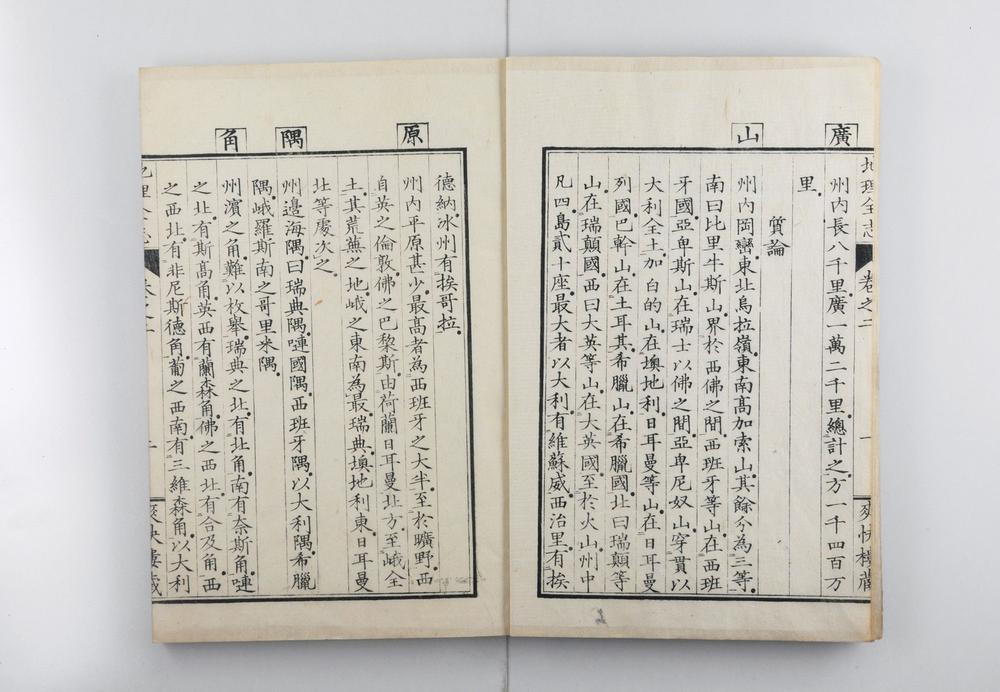 廣
山
地理全志 卷之二 一 爽快樓藏
州內長八千里廣一萬二千里總計之方一千四百万
里
質論
州內岡巒東北烏拉嶺東南高加索山其餘分為三等
南曰比里牛斯山界於西佛之間西班牙等山在西班
牙國亞卑斯山在瑞士以佛之間亞卑尼奴山穿貫以
大利全土加白的山在墺地利日耳曼等山在日耳曼
列國巴幹山在土耳其希臘山在希臘國北曰瑞顛等
山在瑞顛國西曰大英等山在大英國至於火山州中
凡四島貳十座最大者以大利有維蘇威西治里有挨
原
隅
角
德納冰州有挨哥拉
州內平原甚少最高者為西班牙之大半至於曠野西
自英之倫敦佛之巴黎斯由荷蘭日耳曼北方至峨全
土其荒蕪之地峨之東南為最瑞典墺地利東日耳曼
北等處次之
州邊海隅曰瑞典隅嗹國隅西班牙隅以大利隅希臘
隅峨羅斯南之哥里米隅
州濱之角難以枚舉瑞典之北有北角南有奈斯角嗹
之北有斯高角英西有蘭森角佛之西北有合及角西
之西北有非尼斯德角葡之西南有三維森角以大利